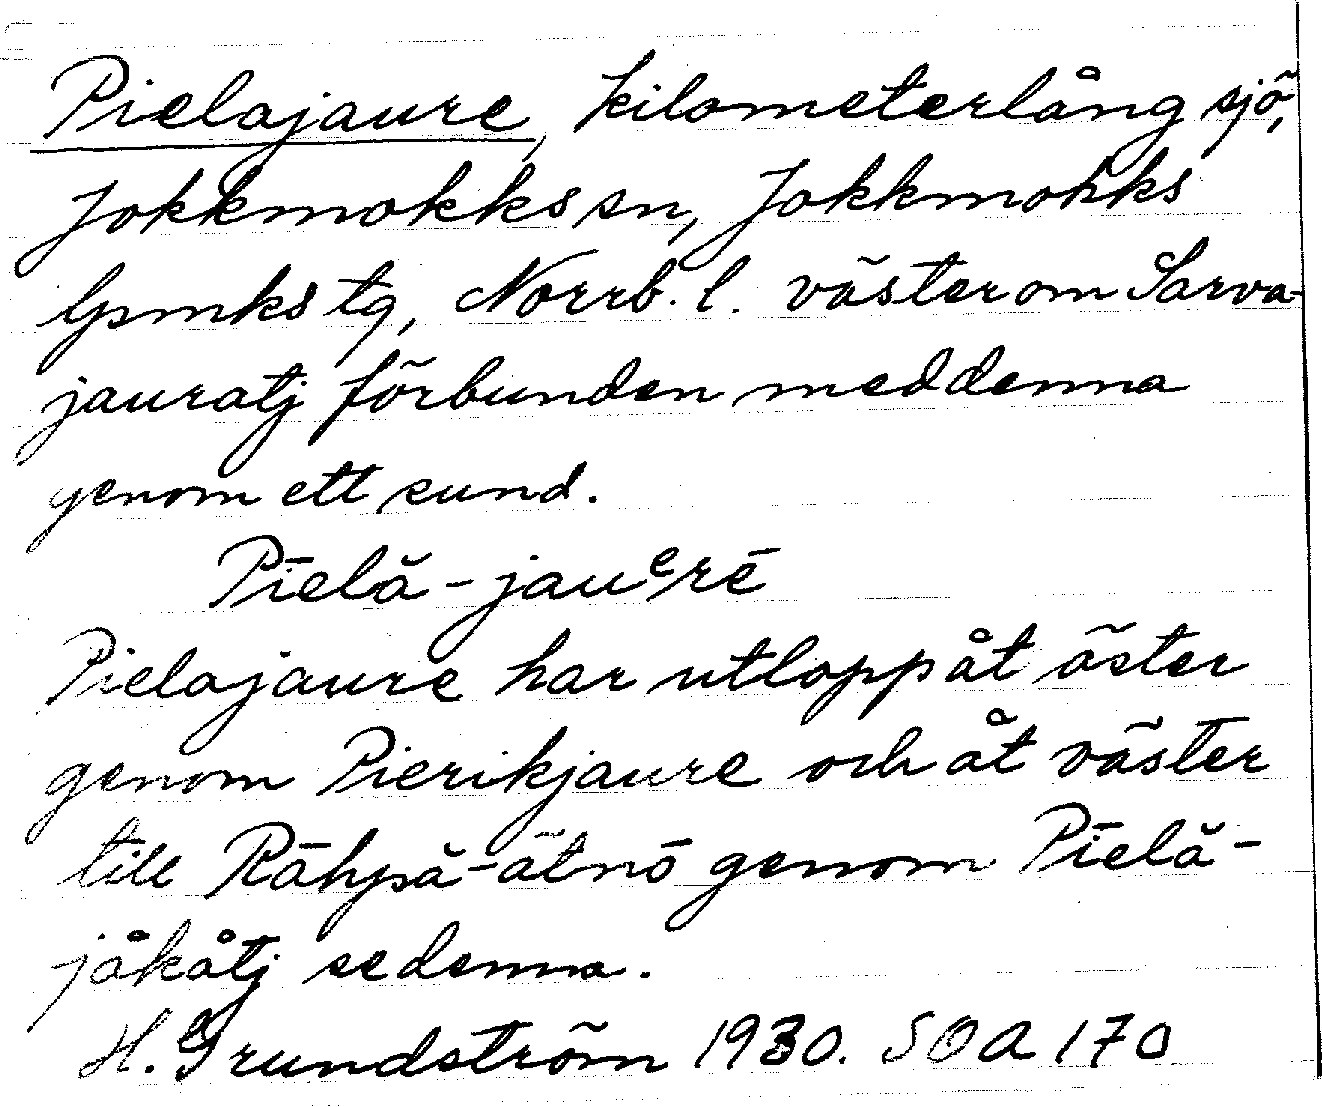 Pielajaure, kilometerlång sjö,
Jokkmokks sn, Jokkmokks
lpmks tg, Norrb. l. väster om Sarva-
jauratj förbunden med denna
genom ett sund.
Pīelă-jauᵉrē
Pielajaure har utlopp åt öster
genom Pierikjaure och åt väster
till Rāhpă-ätnō genom Pīelă-
jåkåtj se denna.
H. Grundström 1930. SOA 170